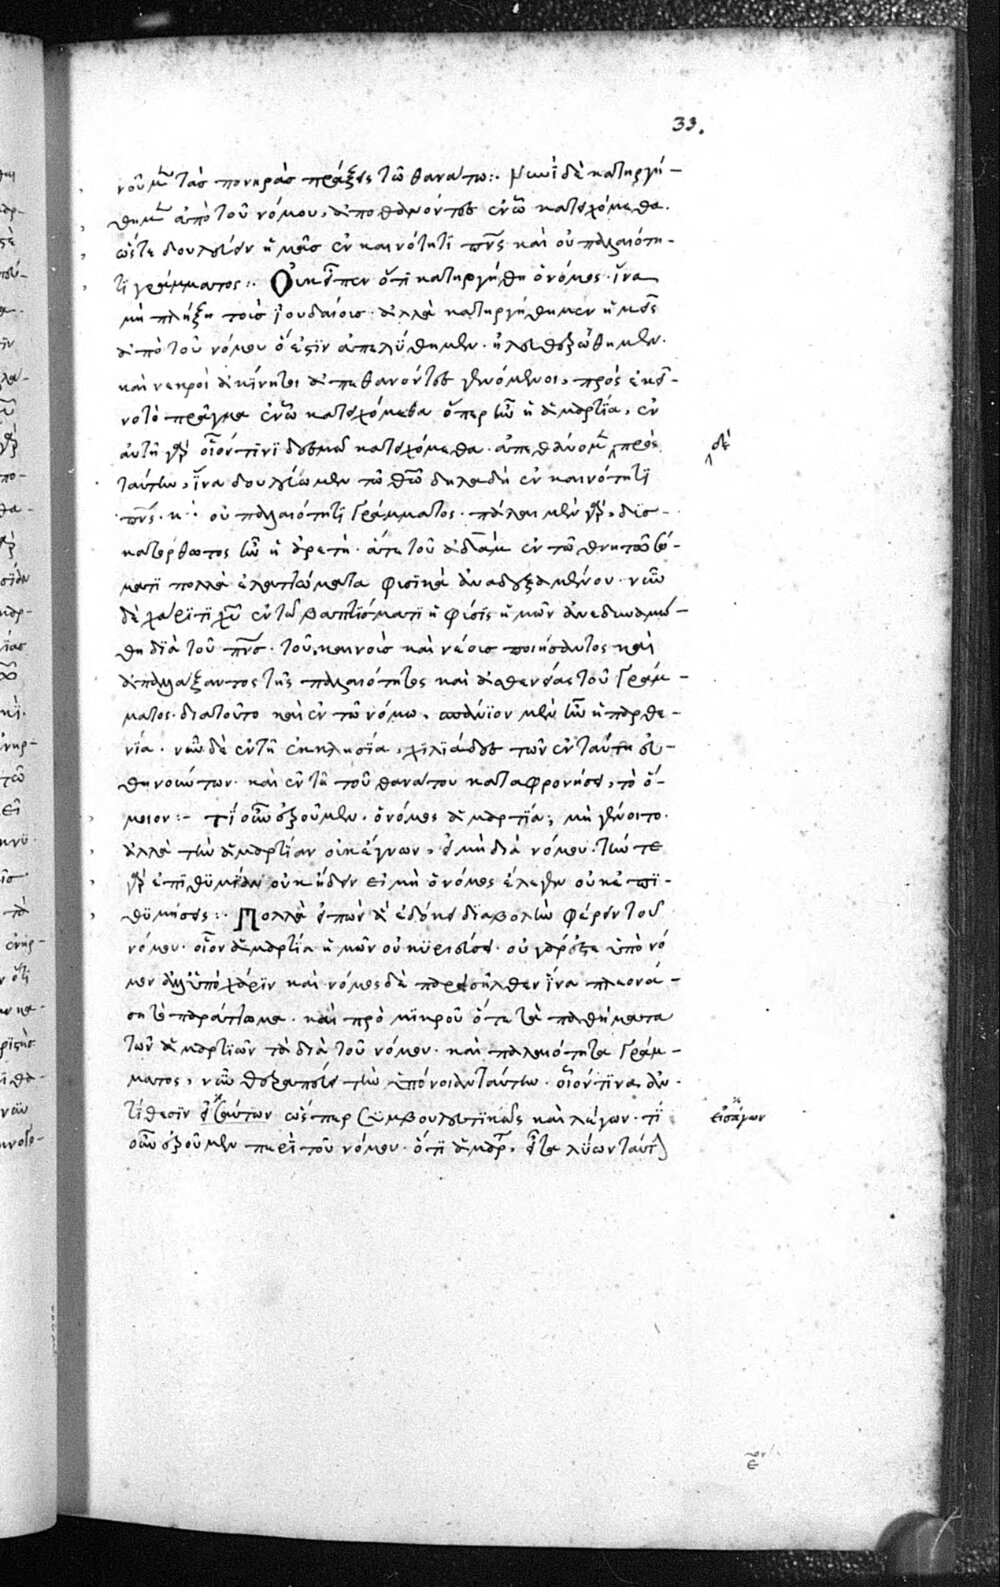 33.
νοῦμεν τὰς πονηρὰς πράξεις τῶ θανάτω :. Νυνῒ δὲ κατηργή-
θημεν ἀπὸ τοῦ νόμου, ἀποθανόντες ἐν ὧ κατειχόμεθα.
ὥστε δουλεύειν ἡμᾶς ἐν καινότητι πνς καὶ οὐ παλαιότη-
τι γράμματος :. Οὐκ εἶπεν ὅτι κατηργήθη ὁ νόμος. ἵνα
μὴ πλήξη τοὺς ἰουδαίους. ἀλλὰ κατηργήθημεν ἡμεῖς
ἀπὸ τοῦ νόμου ὅ ἐστιν ἀπελύθημεν. ἠλευθερώθημεν.
καὶ νεκροὶ ἀκίνητοι ἀποθανόντες γενόμενοι, πρὸς ἐκεῖ-
νο τὸ πρᾶγμα ἐν ὧ κατειχόμεθα ὅπερ ἦν ἡ ἁμαρτία, ἐν
αὐτῆ γὰρ οἷόν τινι δεσμῶ κατειχόμεθα. ἀπεθάνομεν πρὸς
δὲ
ταύτην, ἵνα δουλεύωμεν τῶ θεῶ δηλαδὴ ἐν καινότητι
πνς. κ. οὐ παλαιότητι γράμματος. πάλαι μὲν γὰρ, δυσ-
κατόρθωτος ἦν ἡ ἀρετὴ. ἅτε τοῦ ἀδὰμ ἐν τῶ θνητῶ σώ-
ματι πολλὰ ἐλαττώματα φυσικὰ ἀναδεξαμένου. νῦν
δὲ χάριτι χυ ἐν τῶ βαπτίσματι ἡ φύσις ἡμῶν ἀνεδυναμώ-
θη διὰ τοῦ πνς. τοῦ καινοὺς καὶ νέους ποιήσαντος καὶ
ἀπαλλάξαντος τῆς παλαιότητος καὶ ἀσθενείας τοῦ γράμ-
ματος. διατοῦτο καὶ ἐν τῶ νόμω, σπάνιον μὲν ἦν ἡ παρθε-
νία. νῦν δὲ ἐν τῆ ἐκκλησία, χιλιάδες τῶν ἐν ταύτη εὐ-
θηνούντων. καὶ ἐν τῆ τοῦ θανάτου καταφρονήσει, τὸ ὅ-
μοιον :- τί οὖν ἐροῦμεν. ὁ νόμος ἁμαρτία; μὴ γένοιτο.
ἀλλὰ τὴν ἁμαρτίαν οὐκ ἔγνων, εἰ μὴ διὰ νόμου. τήν τε
γὰρ ἐπιθυμίαν οὐκ ἤδειν εἰ μὴ ὁ νόμος ἔλεγεν οὐκ ἐπι-
θυμήσεις :. Πολλὰ εἰπὼν ἃ ἐδόκει διαβολὴν φέρειν τοῦ
νόμου. οἷον ἁμαρτία ἡμῶν οὐ κυριεύσει. οὐ γάρ ἐστε ὑπὸ νό
μον ἀλλ' ὑπὸ χάριν καὶ νόμος δὲ παρεισῆλθεν ἵνα πλεονά-
ση τὸ παράπτωμα. καὶ πρὸ μικροῦ ὅτε τὰ παθήματα
τῶν ἁμαρτιῶν τὰ διὰ τοῦ νόμου. καὶ παλαιότητα γράμ-
ματος, νῦν θεραπεύει τὴν ὑπόνοιαν ταύτην. οἷόν τινα ἀν-
τίθεσιν ἐξ αὐτῶν ὥσπερ συμβουλευτικῶς καὶ λέγων. τί
εἰσάγων
οὖν ἐροῦμεν περὶ τοῦ νόμου. ὅτι ἁμαρτία. εἶτα λύων ταύτ
ε